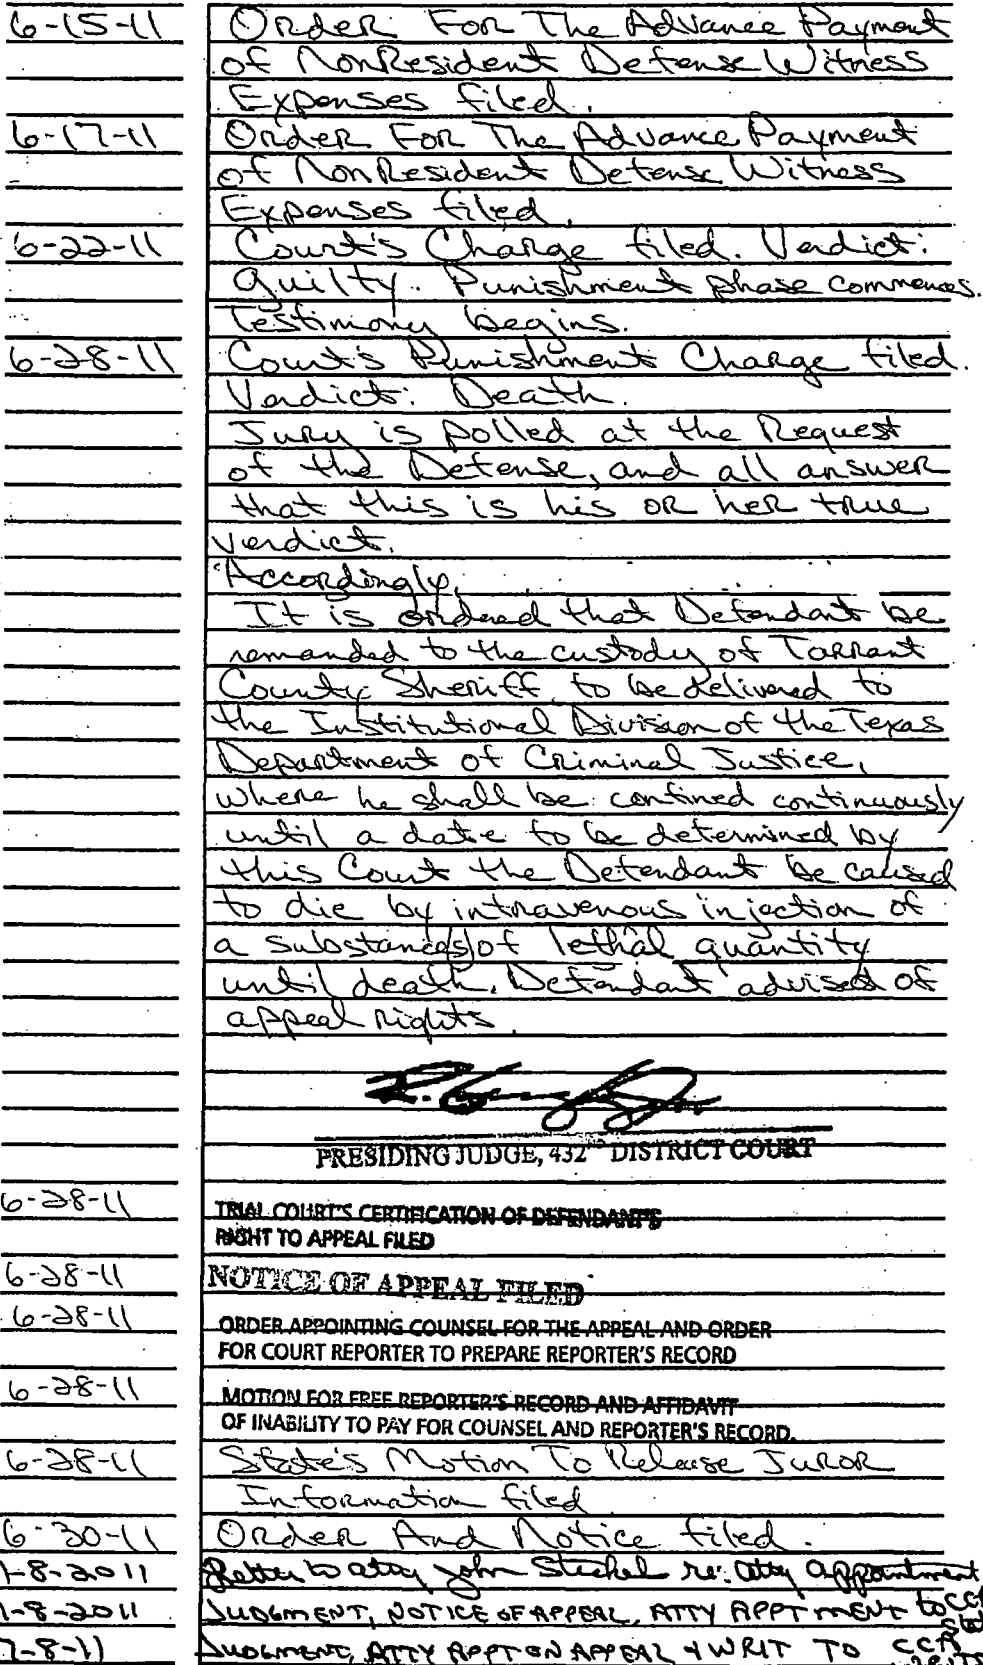 6-15-11 Order For The Advance Payment
of NonResident Defense Witness
Expenses filed.
6-17-11 Order For The Advance Payment
of NonResident Defense Witness
Expenses filed.
6-22-11 Court's Charge filed. Verdict:
guilty. Punishment phase commences.
Testimony begins.
6-28-11 Court's Punishment Charge filed.
Verdict: Death.
Jury is polled at the Request
of the Defense, and all answer
that this is his or her true
verdict.
Accordingly,
It is ordered that Defendant be
remanded to the custody of Tarrant
County Sheriff to be delivered to
the Institutional Division of the Texas
Department of Criminal Justice,
where he shall be confined continuously
until a date to be determined by
this Court the Defendant be caused
to die by intravenous injection of
a substance(s) of lethal quantity
until death. Defendant advised of
appeal rights.
PRESIDING JUDGE, 432ND DISTRICT COURT
6-28-11 TRIAL COURT'S CERTIFICATION OF DEFENDANT'S
RIGHT TO APPEAL FILED
6-28-11 NOTICE OF APPEAL FILED
6-28-11 ORDER APPOINTING COUNSEL FOR THE APPEAL AND ORDER
FOR COURT REPORTER TO PREPARE REPORTER'S RECORD
6-28-11 MOTION FOR FREE REPORTER'S RECORD AND AFFIDAVIT
OF INABILITY TO PAY FOR COUNSEL AND REPORTER'S RECORD.
6-28-11 State's Motion To Release Juror
Information filed
6-30-11 Order And Notice filed.
-8-2011 Letter to atty John Stickel re: atty appointment
-8-2011 JUDGMENT, NOTICE OF APPEAL, ATTY APPTMENT to CCA
7-8-11 JUDGMENT, ATTY APPT ON APPEAL & WRIT TO CCA